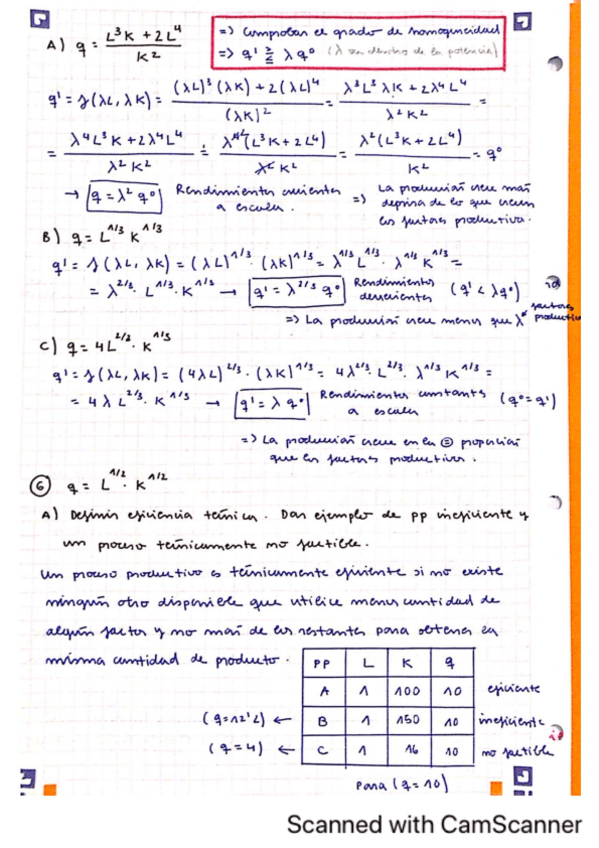 => Comprobar el grado de homogeneidad
A) q = (L³K + 2L⁴) / K²
=> q' ⋛ λ q⁰ (λ sen dentro de la potencia)
q' = f(λL, λK) = ((λL)³ (λK) + 2(λL)⁴) / (λK)² = (λ³L³ λK + 2λ⁴L⁴) / (λ²K²) =
= (λ⁴L³K + 2λ⁴L⁴) / (λ²K²) = (λ⁴² (L³K + 2L⁴)) / (λ² K²) = (λ² (L³K + 2L⁴)) / K² = q⁰
→ q = λ² q⁰ Rendimientos crecientes a escala. => La producción crece más
deprisa de lo que crecen
los factores productivos.
B) q = L^1/3 K^1/3
q' = f(λL, λK) = (λL)^1/3 · (λK)^1/3 = λ^1/3 L^1/3 · λ^1/3 K^1/3 =
= λ^2/3 · L^1/3 · K^1/3 → q' = λ^2/3 q⁰ Rendimientos decrecientes (q' < λq⁰)
=> La producción crece menos que λ factores productivos
C) q = 4L^2/3 · K^1/3
q' = f(λL, λK) = (4λL)^2/3 · (λK)^1/3 = 4λ^2/3 · L^2/3 · λ^1/3 K^1/3 =
= 4λ L^2/3 · K^1/3 → q' = λ q⁰ Rendimientos constantes a escala (q⁰ = q')
=> La producción crece en la = proporción
que los factores productivos.
6 q = L^1/2 · K^1/2
A) Definir eficiencia técnica. Dar ejemplo de pp ineficiente y
un proceso técnicamente no factible.
Un proceso productivo es técnicamente eficiente si no existe
ningún otro disponible que utilice menos cantidad de
algún factor y no más de los restantes para obtener la
misma cantidad de producto.
PP L K q
A 1 100 10 eficiente
(q=12'2) ← B 1 150 10 ineficiente
(q=4) ← C 1 16 10 no factible
Para (q=10)
Scanned with CamScanner